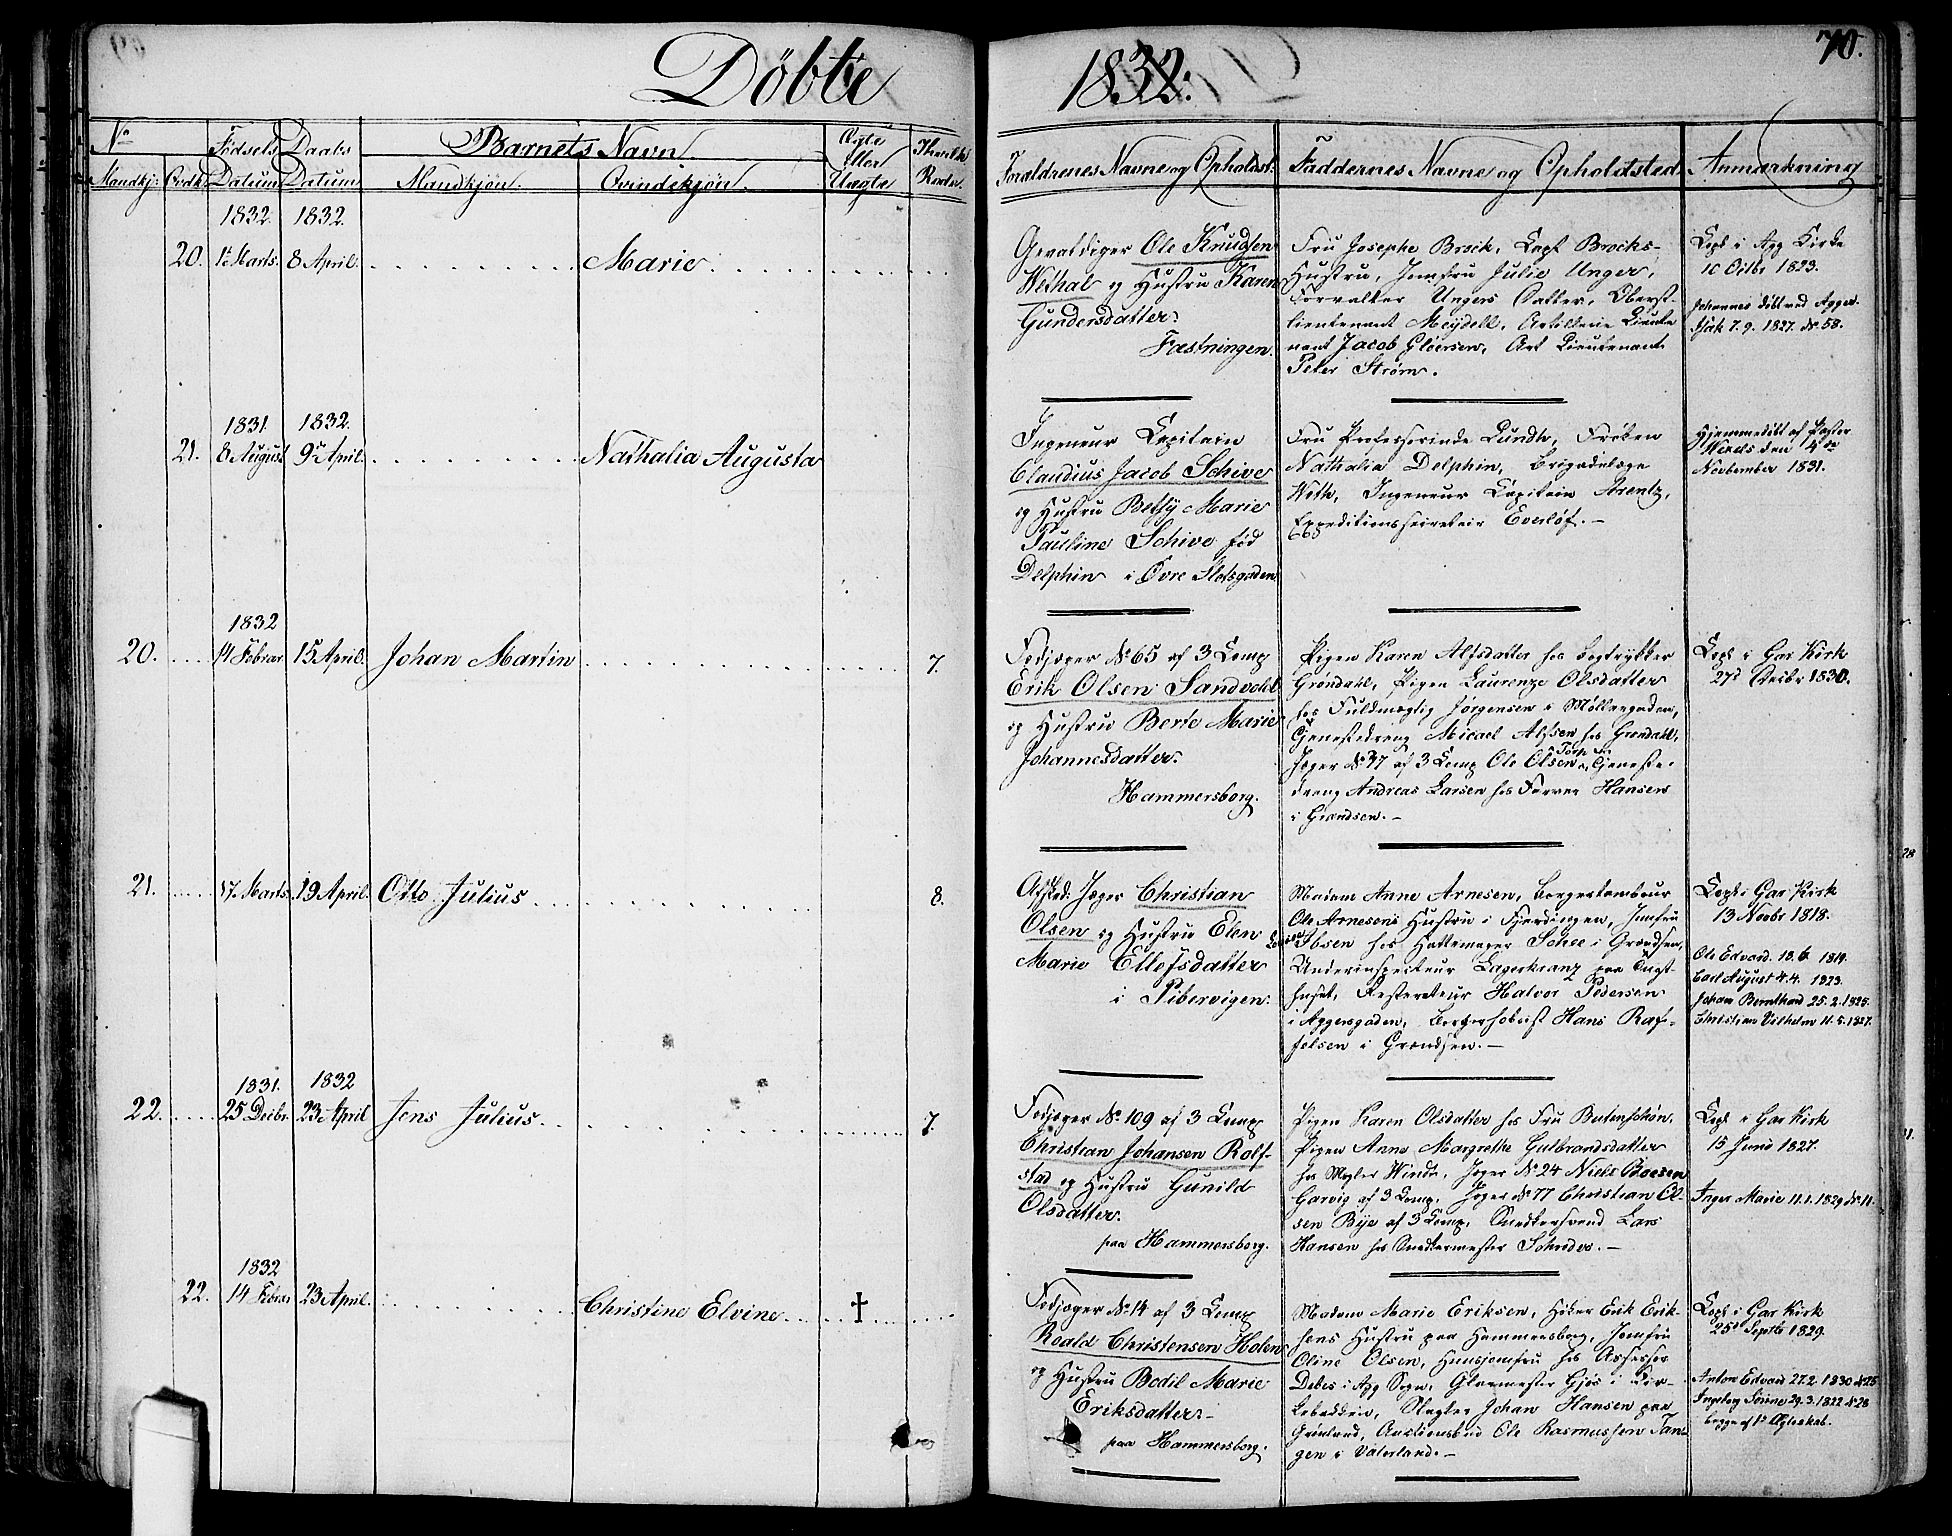 Döbte 1832. 70.
No
Mandkj: Qvdk
Fødsels Datum
Daabs Datum
Barnets Navn.
Mandkjön. Qvindekjön.
Ægte eller Uægte
Forældrenes Navne og Opholdst.
Faddernes Navne og Opholdsted
Anmærkning
1832. 1832.
20. 8 April. Marie
Gevaldiger Ole Knudsen
Wethal og Hustru Karen
Gundersdatter.
Fæstningen.
Fru Josephe Brock, Capt Brocks
Hustru, Jomfru Julie Unger,
Forvalter Ungers Datter, Oberst-
lieutenant Meydell, Artillerie Lieute
nant Jacob Gløersen, Art Lieutenant
Peter Strøm.
Copl i Agg Kirke
10 Octbr 1823.
Johannes döbt ved Agger.
7.9. 1827. No 58.
1831 1832.
21. 8 August 9de April. Nathalia Augusta
Ingeneur Capitain
Claudius Jacob Schive
og Hustru Betsy Marie
Pauline Schive fød
Delphin i Øvre Slotsgaden
Fru Professorinde Lundh, Frøken
Nathalia Delphin, Brigadelæge
Ingeneur Capitain Arentz,
Expeditionssecretair Everløf.-
Hjemmedöbt af Pastor
den 4de
November 1831.
1832
20. 14 Februar 15 April. Johan Martin 7.
Fodjæger No 65 af 3 Comp
Erik Olsen Sandvold
og Hustru Berte Marie
Johannesdatter.
Hammersborg.
Pigen Karen Alfsdatter hos Bogtrykker
Grøndahl, Pigen Laurenze Olsdatter
hos Fuldmægtig Jørgensen i Møllergaden,
Tjenestedreng Micael Alfsen hos Grøndahl,
Jæger No 37 af 3 Comp Ole Olsen Torp, Tjeneste-
dreng Andreas Larsen hos Farver Hansen
i Grændsen.-
Copl i Gar Kirk
27d Decbr 1830.
21. 17 Marts. 19 April. Otto Julius 8.
Afsked: Jæger Christian
Olsen og Hustru Elen
Marie Ellefsdatter
i Pibervigen.
Madam Anne Arnesen, Borgertambour
Ole Arnesens Hustru i Fjerdingen, Jomfru
Lovise Ibsen hos Hattemager Schee i Grændsen,
Underinspecteur Lagerkranz paa Tugt-
huset, Restorateur Halvor Pedersen
i Aggersgaden, Borgerhoboist Hans Raf-
felsen i Grændsen.-
Copl i Gar Kirk
13 Novbr 1818.
Ole Edvard. 13.6 1819.
Carl August 4.4. 1823.
Johan Bernthard 25.2.1825.
Christian Vilhelm 11.5.1827.
1831. 1832
22. 25 Decbr. 23 April Jens Julius 7.
Fodjæger No 109 af 3 Comp
Christian Johansen Rolf-
stad og Hustru Gunild
Olsdatter.
paa Hammersborg.
Pigen Karen Olsdatter hos Fru Butenschön,
Pigen Anne Margrethe Gulbrandsdatter
hos Mægler Windt, Jæger No 24 Niels Boesen
Garvig af 3 Comp, Jæger No 77 Christian Ol-
sen Bye af 3 Comp, Snedkersvend Lars
Hansen hos Snedkermester Schrøder.-
Copl i Gar Kirk
15 Juni 1827.
Inger Marie 11.1.1829 No 11.
1832
22. 14 Febrar 23 April. Christine Elvine †
Fodjæger No 14 af 3 Comp
Roald Christensen Holen
og Hustru Bodil Marie
Eriksdatter.-
paa Hammersborg.
Madam Marie Eriksen, Høker Erik Erik-
sens Hustru paa Hammersborg, Jomfru
Oline Olsen, Huusjomfru hos Assessor
Debes i Agg Sogn, Glarmester Gjøs i Kir-
kebakken, Slagter Johan Hansen paa
Grønland, Auctionsbud Ole Rasmussen Tan-
gen i Vaterland.-
Copl i Gar Kirk
25d Septbr 1829.
Anton Edvard 27.2.1830 No 25
Ingeborg 29.3.1822 No 28
begge af 1ste Ægteskab.